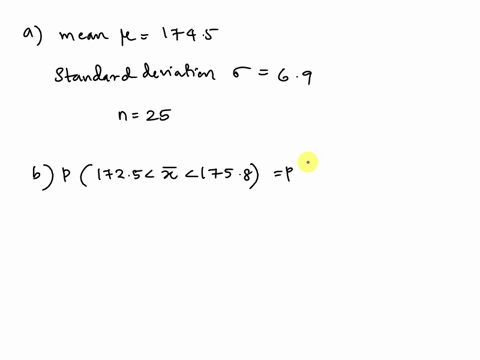 a) mean μ = 174.5
Standard deviation σ = 6.9
n = 25
b) P (172.5 < x̄ < 175.8) = P